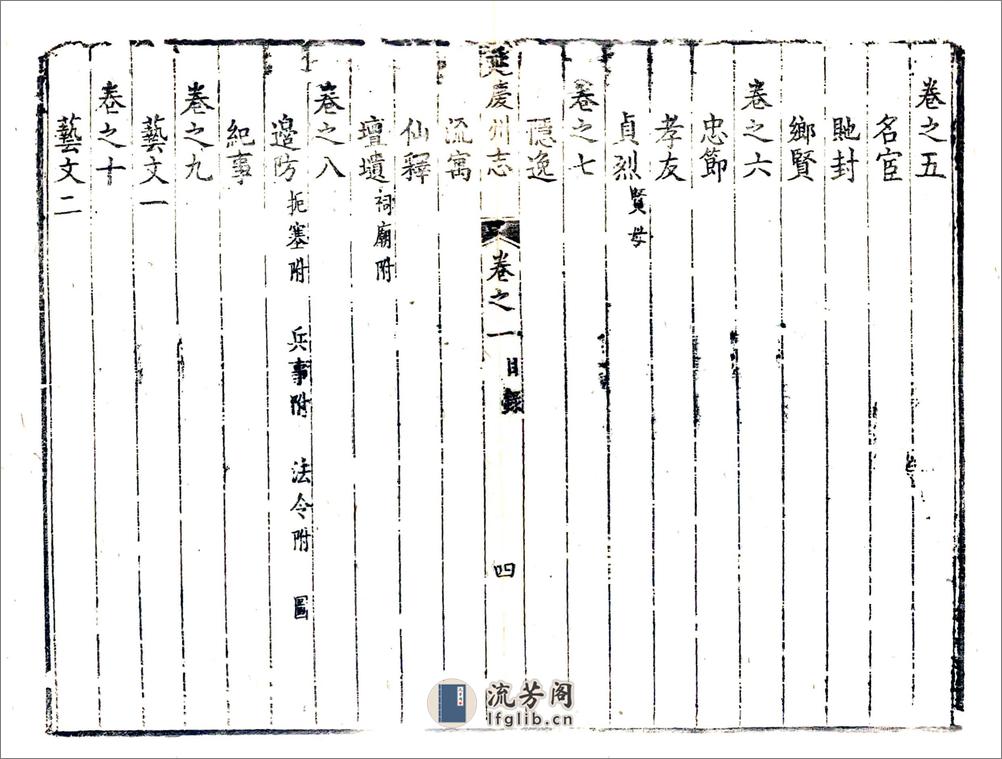 卷之五
名宦
貤封
鄉賢
卷之六
忠節
孝友
貞烈 賢母
卷之七
隱逸
延慶州志 卷之一 目錄 四
流寓
仙釋
壇壝 祠廟附
卷之八
邊防 扼塞附 兵事附 法令附 圖
紀事
卷之九
藝文一
卷之十
藝文二
流芳阁
lfglib.cn